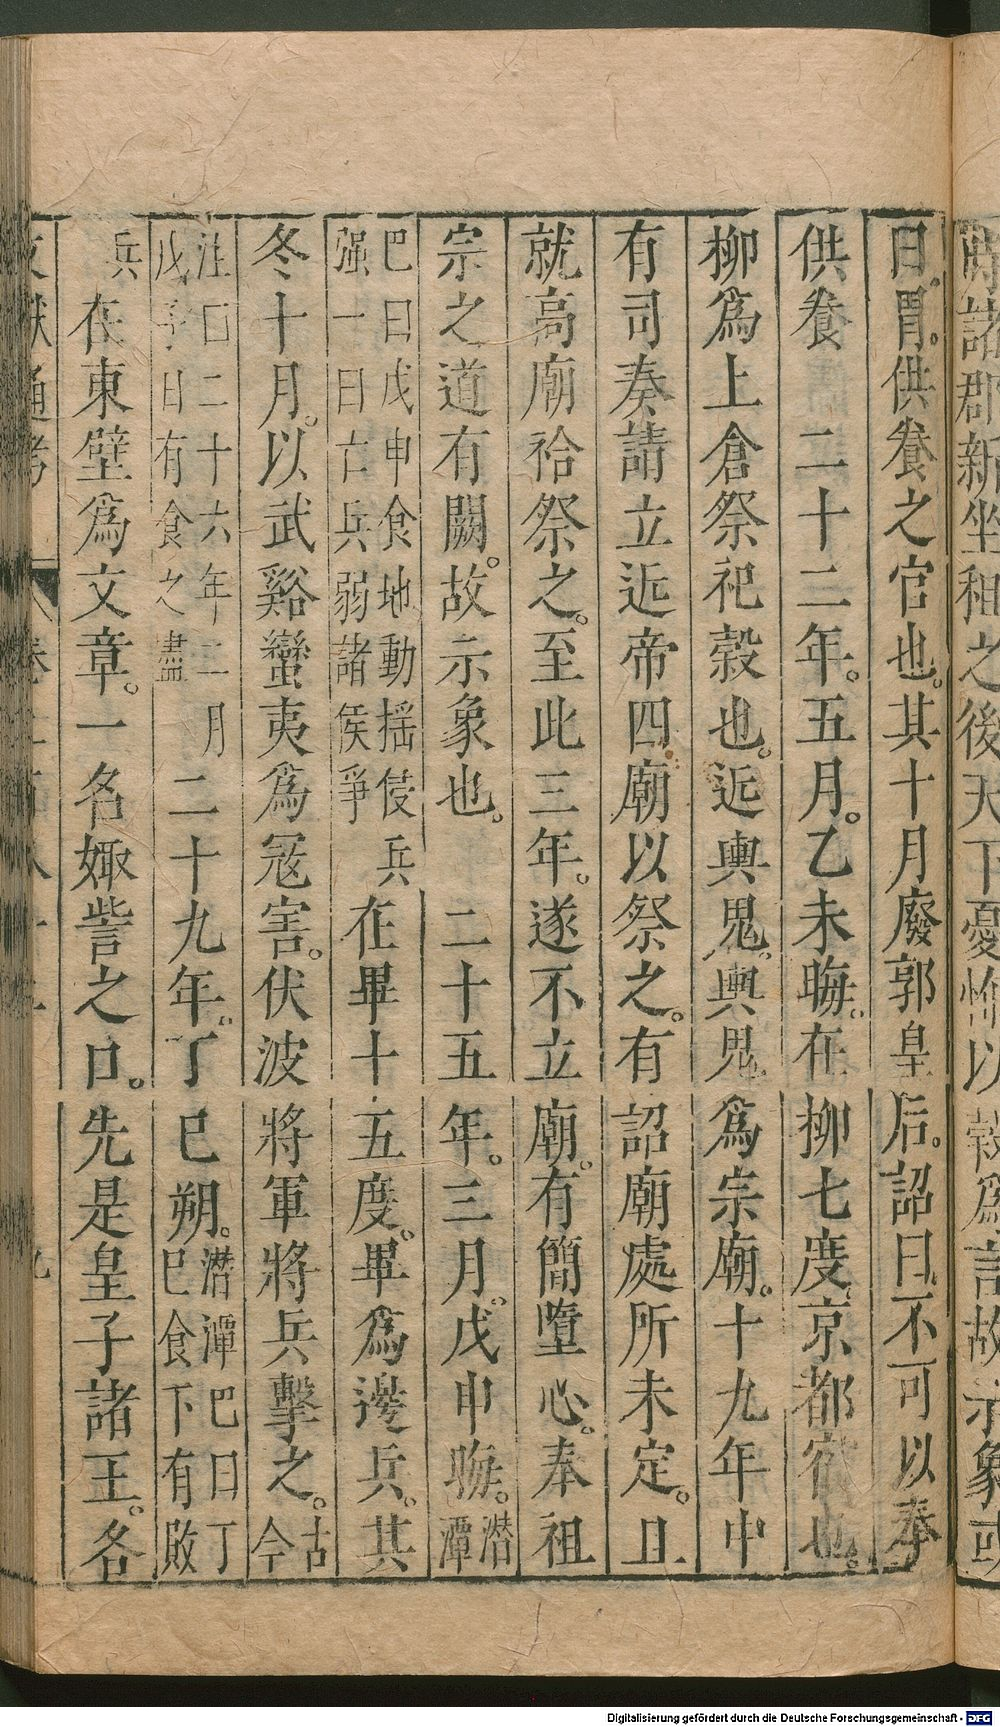 時諸郡新坐租之後天下憂怖以穀爲言故示象或
曰。胃。供養之官也。其十月廢郭皇后。詔曰。不可以奉
供養 二十二年。五月。乙未晦。在柳七度。京都宿也。
柳爲上倉祭祀穀也。近輿鬼。輿鬼爲宗廟。十九年中
有司奏請立近帝四廟以祭之。有詔廟處所未定。且
就高廟祫祭之。至此三年。遂不立廟。有簡墮心。奉祖
宗之道有闕。故示象也。 二十五年。三月。戊申晦。潛潭
巴曰戊申食地動揺侵兵
强一曰亡兵弱諸侯爭
在畢十五度。畢爲邊兵。其
冬十月。以武谿蠻夷爲冦害。伏波將軍將兵擊之。古今
注曰二十六年二月
戊子日有食之盡
二十九年。丁巳朔。潛潭巴曰丁
巳食下有敗
兵 在東壁爲文章。一名娵訾之口。先是皇子諸王。各
文獻通考 卷二百八十二 九
Digitalisierung gefördert durch die Deutsche Forschungsgemeinschaft - DFG